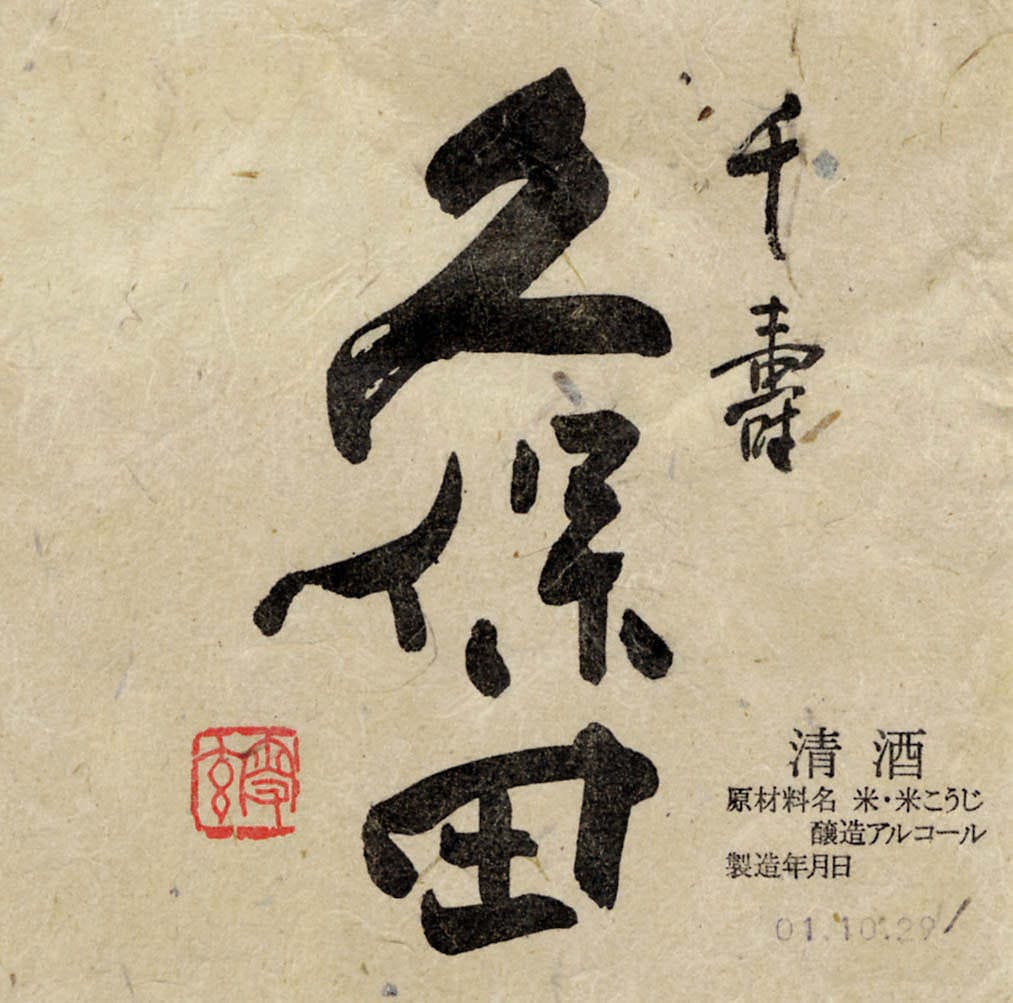 千壽
久保田
清酒
原材料名 米・米こうじ
醸造アルコール
製造年月日
01.10.29